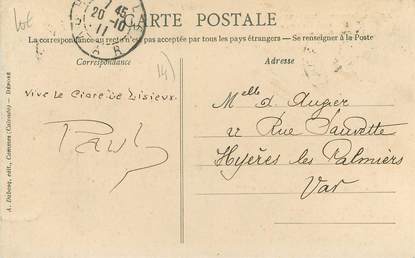 CARTE POSTALE
La correspondance au recto n'est pas acceptée par tous les pays étrangers — Se renseigner à la Poste
Correspondance
Adresse
7 45
20-10
11
Vive Le Cidre de Lisieux
Paul
Melle d. Auger
Rue Sauvette
Hyères les Palmiers
Var
A. Dubosq, édit., Commes (Calvados) —